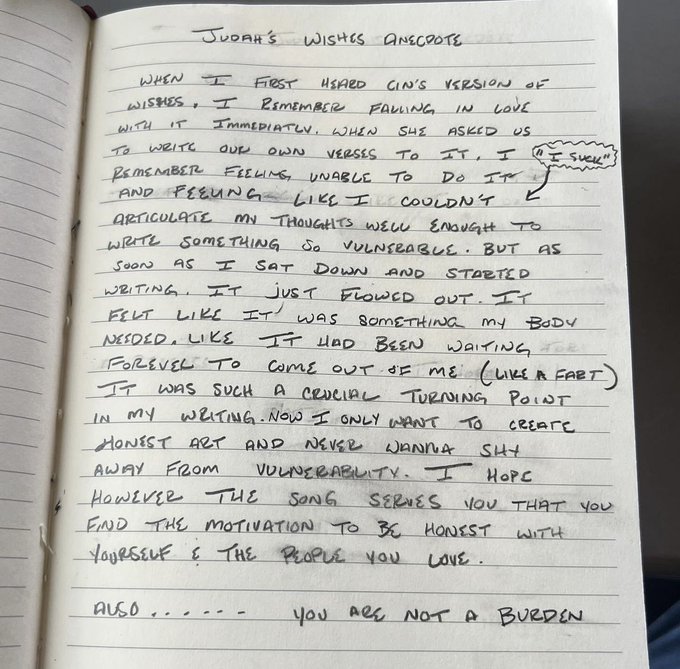 JUDAH'S WISHES ANECDOTE
WHEN I FIRST HEARD CIN'S VERSION OF
WISHES, I REMEMBER FALLING IN LOVE
WITH IT IMMEDIATLY. WHEN SHE ASKED US
TO WRITE OUR OWN VERSES TO IT, I
"I SUCK"
REMEMBER FEELING UNABLE TO DO IT
AND FEELING LIKE I COULDN'T
ARTICULATE MY THOUGHTS WELL ENOUGH TO
WRITE SOMETHING SO VULNERABLE. BUT AS
SOON AS I SAT DOWN AND STARTED
WRITING, IT JUST FLOWED OUT. IT
FELT LIKE IT WAS SOMETHING MY BODY
NEEDED, LIKE IT HAD BEEN WAITING
FOREVER TO COME OUT OF ME (LIKE A FART)
IT WAS SUCH A CRUCIAL TURNING POINT
IN MY WRITING. NOW I ONLY WANT TO CREATE
HONEST ART AND NEVER WANNA SHY
AWAY FROM VULNERABILITY. I HOPE
HOWEVER THE SONG SERVES YOU THAT YOU
FIND THE MOTIVATION TO BE HONEST WITH
YOURSELF & THE PEOPLE YOU LOVE.
ALSO...... YOU ARE NOT A BURDEN